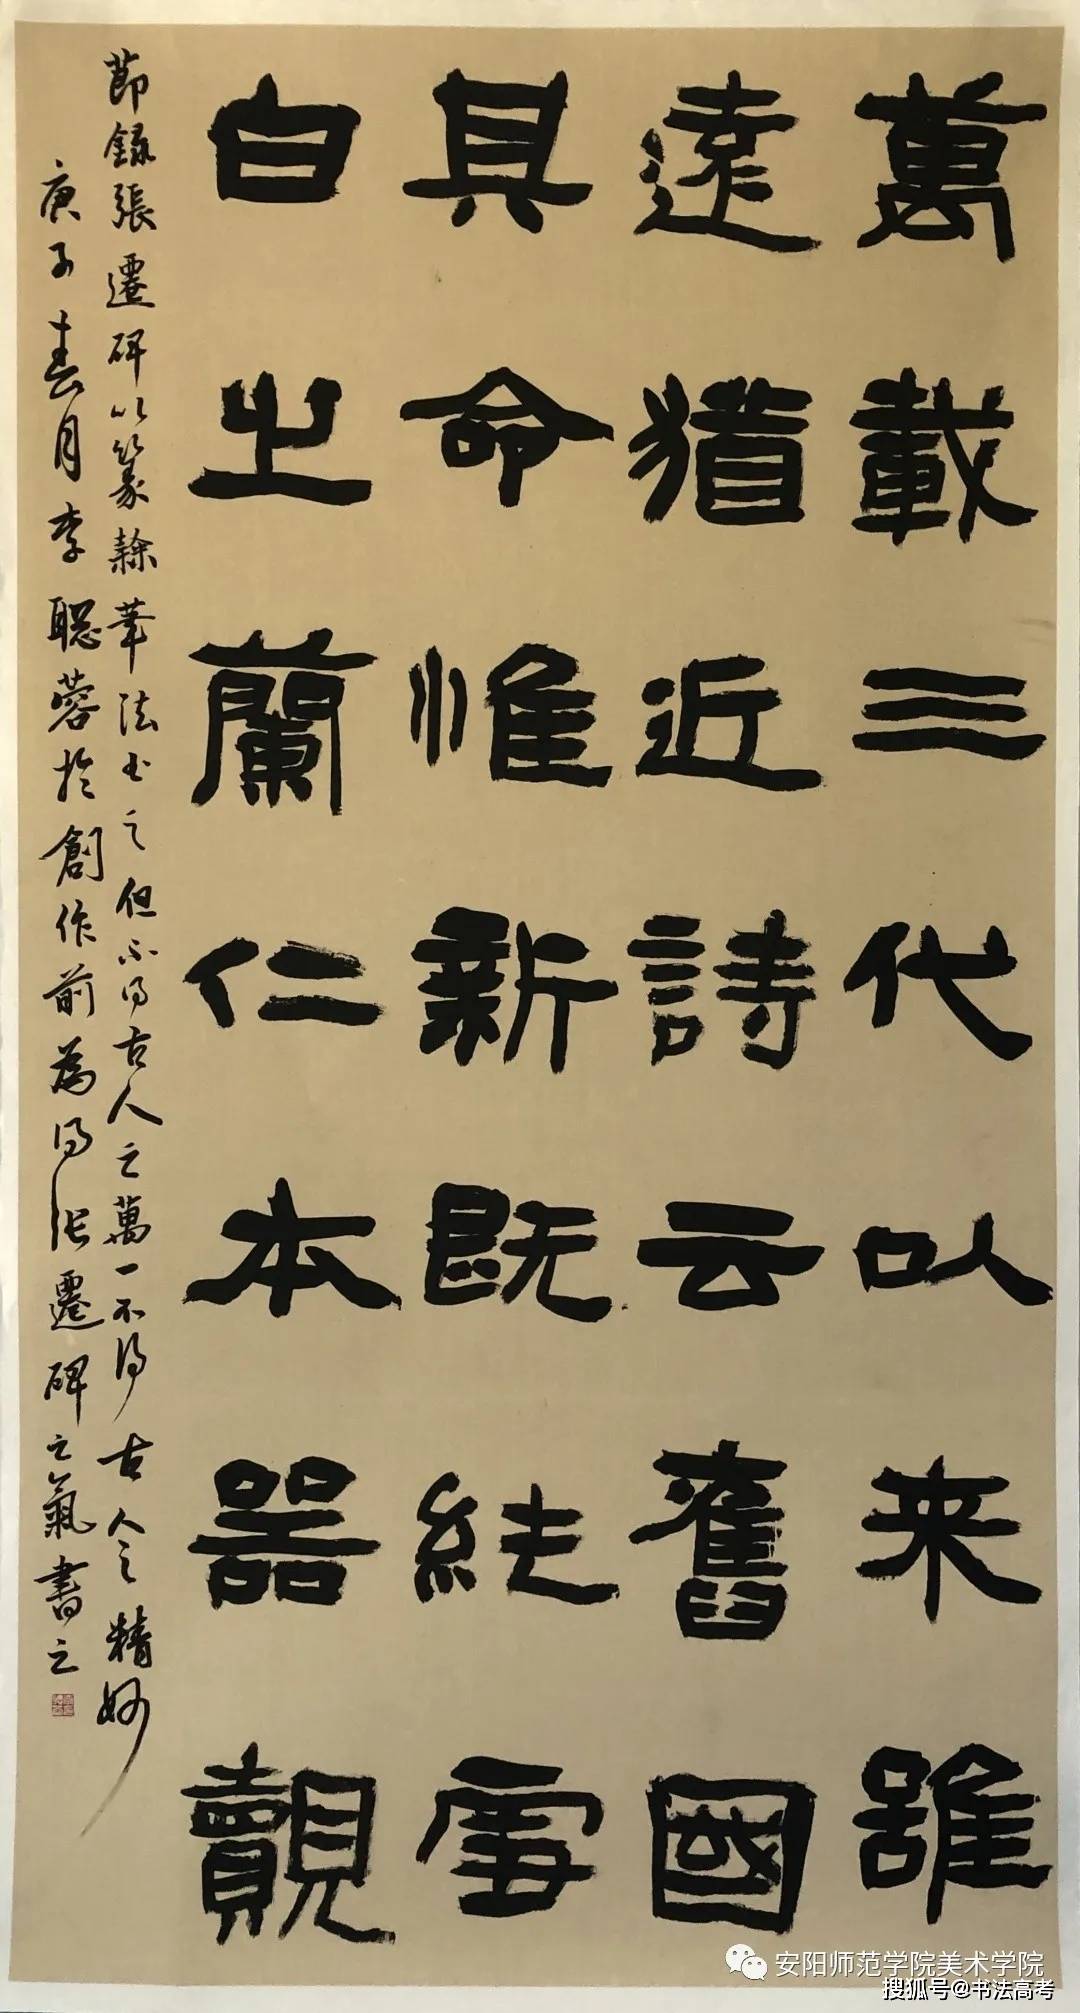 萬載三代以来雖
遠猶近詩云舊國
其命惟新既純雪
白之蘭仁本器覿
節錄張遷碑以篆隸筆法书之但不得古人之萬一不得古人之精妙
庚子春月李聰蓉於創作前為得张遷碑之氣書之
安阳师范学院美术学院
搜狐号@书法高考